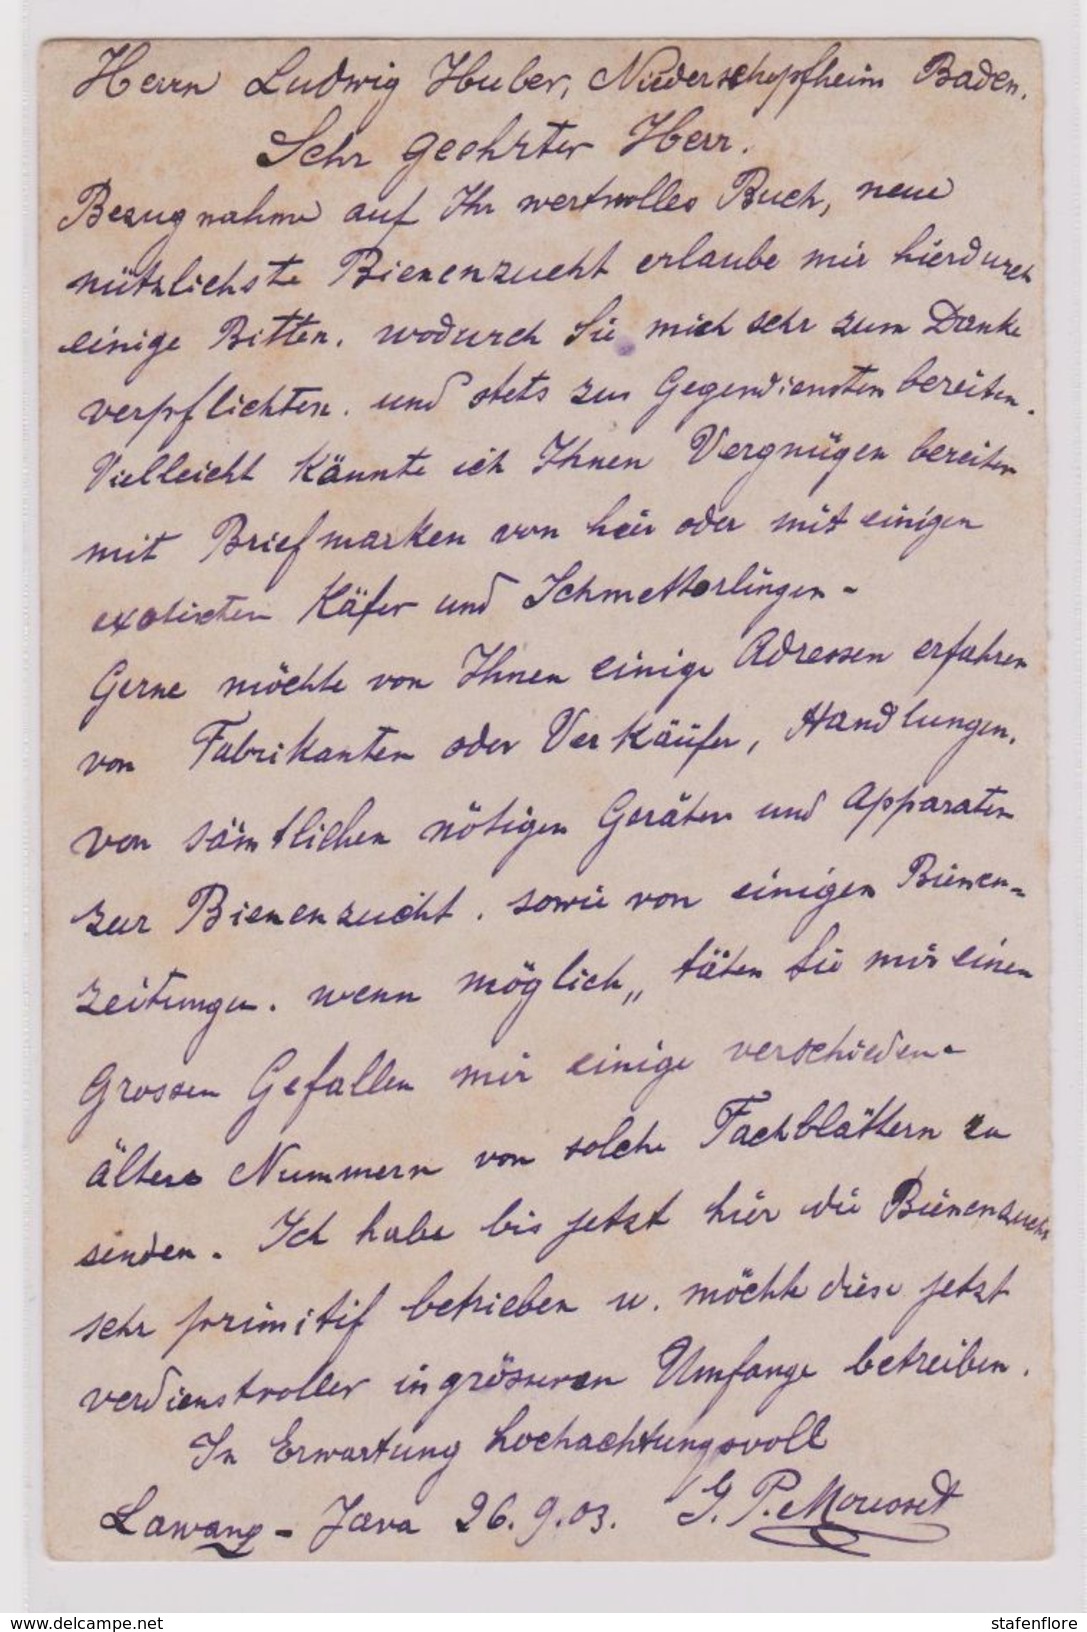 Herrn Ludwig Huber, Niederschopfheim Baden.
Sehr geehrter Herr.
Bezugnahme auf Ihr wertvolles Buch, neue
nützlichste Bienenzucht erlaube mir hierdurch
einige Bitten. wodurch Sie mich sehr zum Danke
verpflichten. und stets zu Gegendiensten bereiten.
Vielleicht könnte ich Ihnen Vergnügen bereiten
mit Briefmarken von hier oder mit einigen
exotischen Käfer und Schmetterlingen -
Gerne möchte von Ihnen einige Adressen erfahren
von Fabrikanten oder Verkäüfer, Handlungen.
von sämtlichen nötigen Geräten und Apparaten
zur Bienenzucht. sowie von einigen Bienen=
zeitungen. wenn möglich,, täten Sie mir einen
Grossen Gefallen mir einige verschiedene
ältere Nummern von solche Fachblättern zu
senden. Ich habe bis jetzt hier die Bienenzucht
sehr primitif betrieben u. möchte diese jetzt
verdienstvoller in grösseren Umfange betreiben.
In Erwartung hochachtungsvoll
Lawang - Java 26.9.03. G. P. Mousset
https://www.delcampe.net
stafenflore